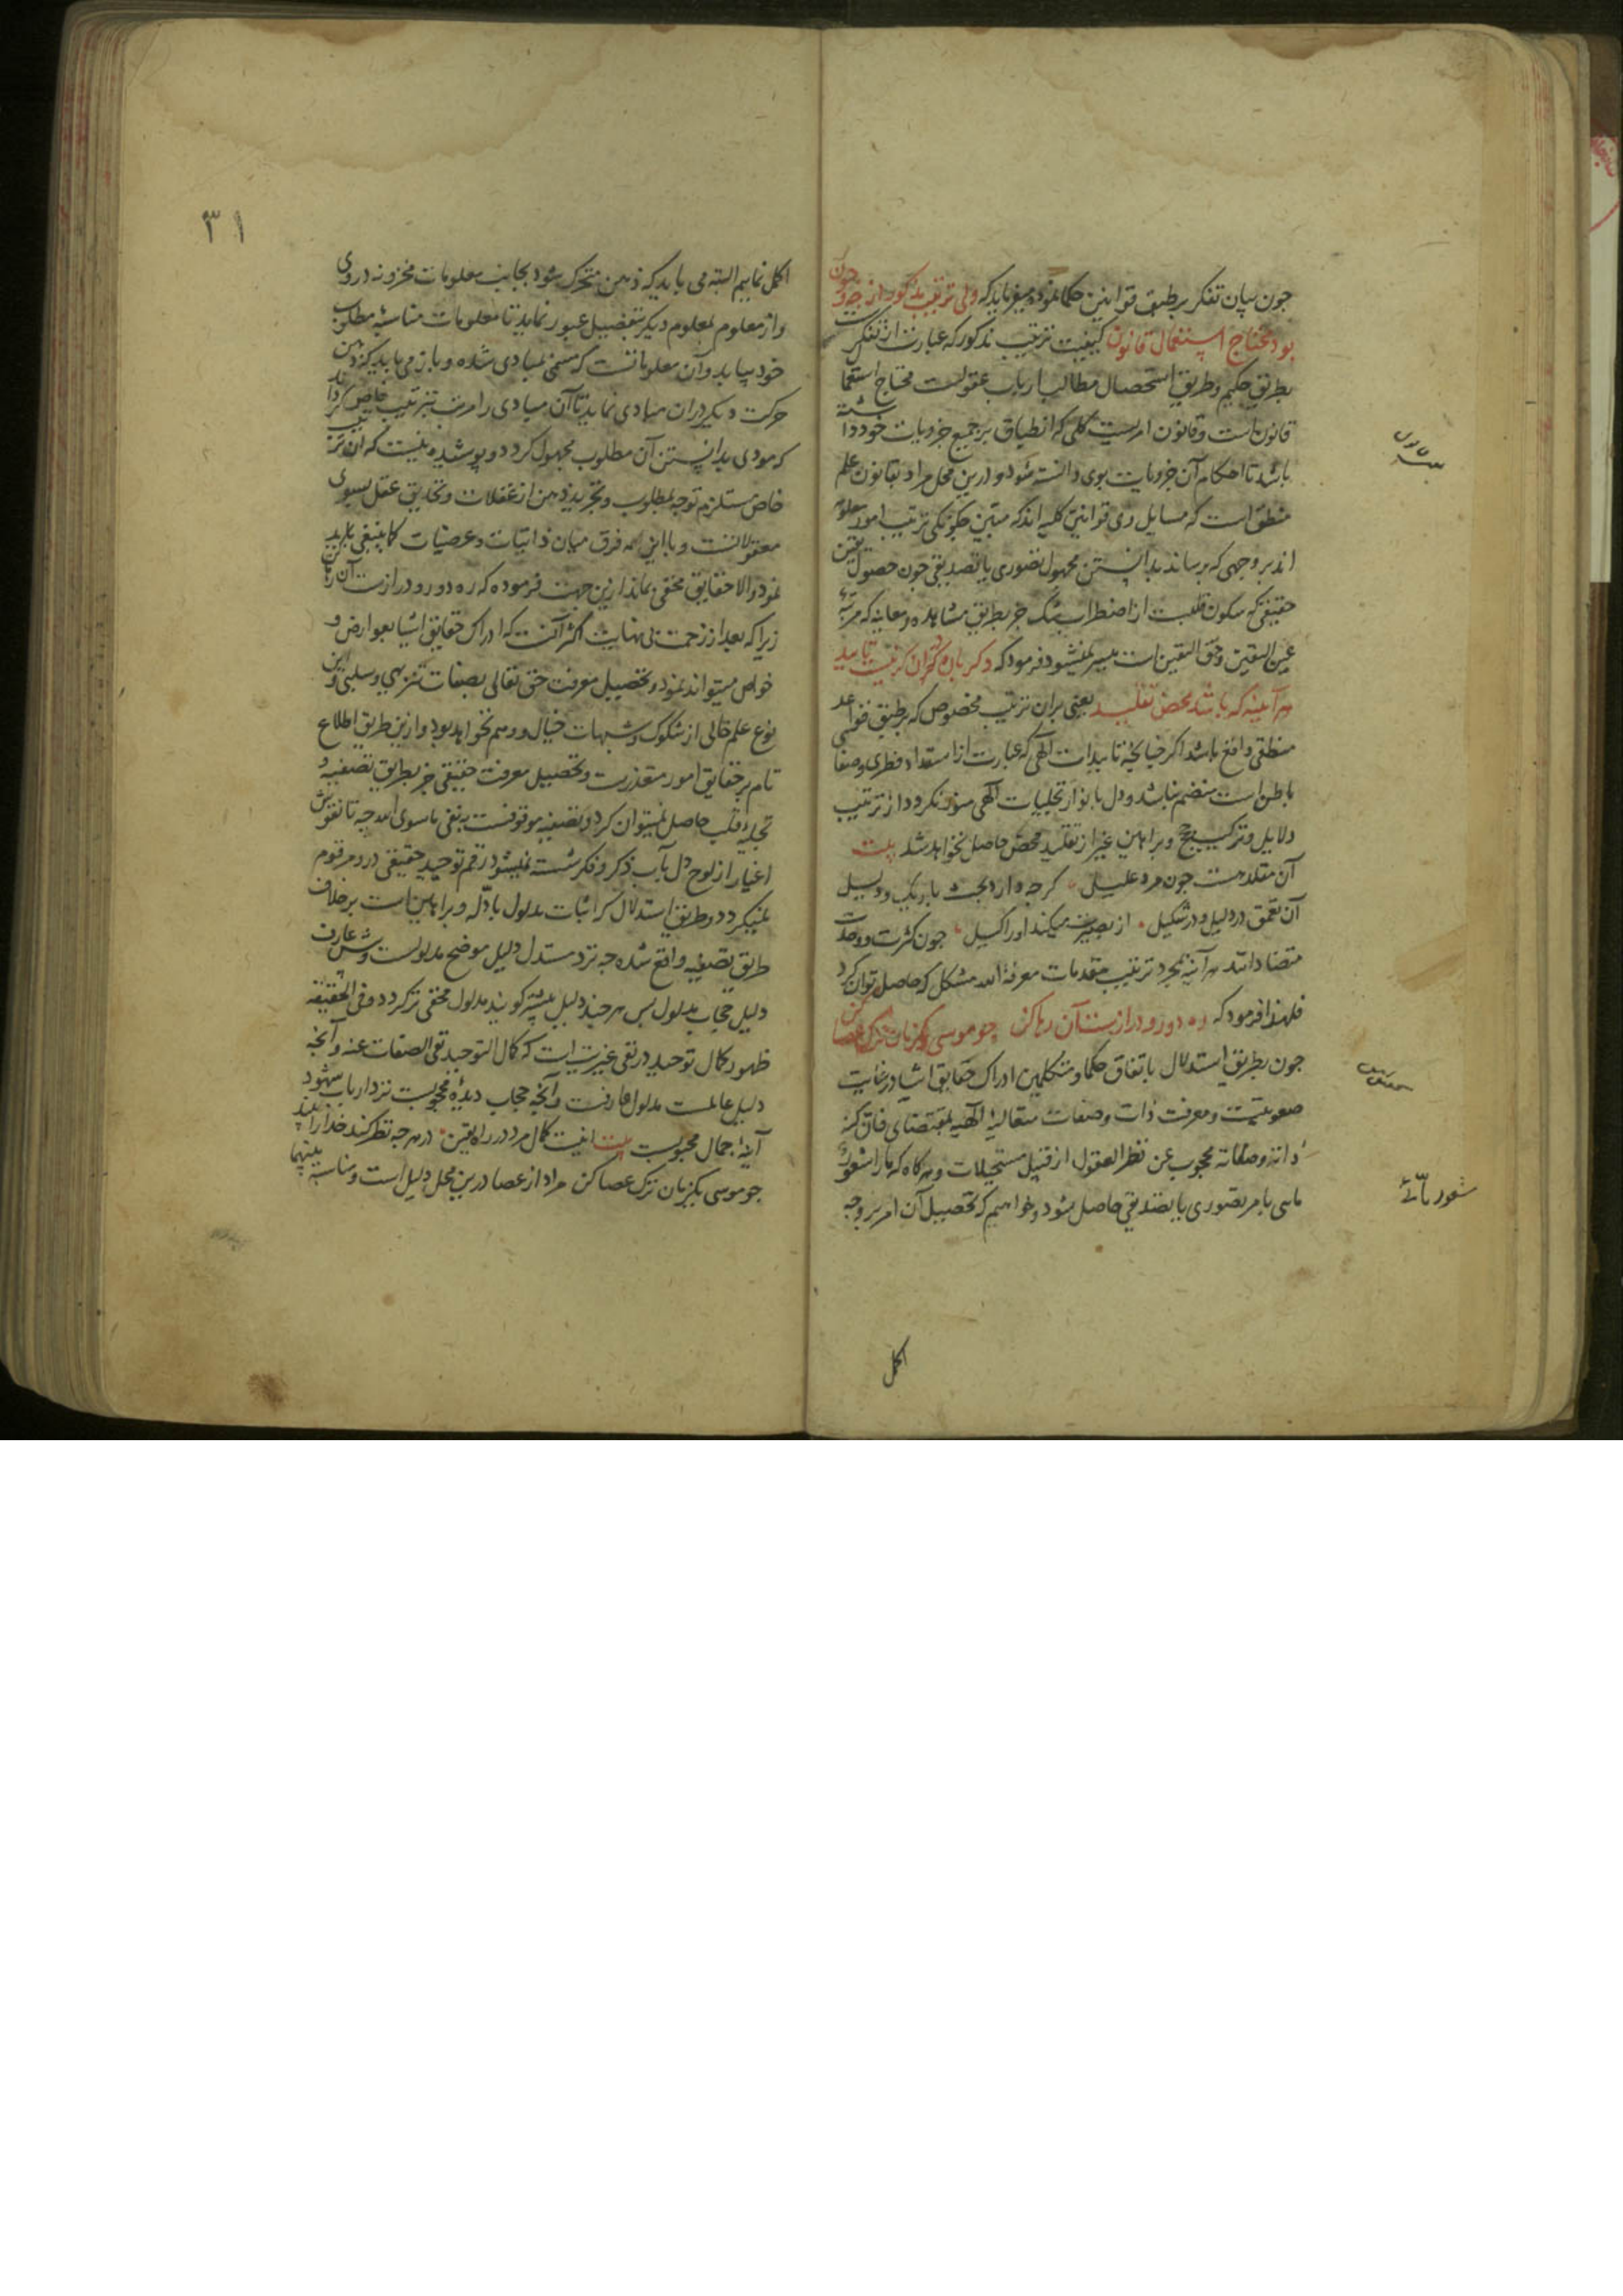 چون بیان تفکر بر طبق قوانین حکما نمود میفرماید که ولی ترتیب مذکور از چه و چون
بود محتاج استعمال قانون کیفیت ترتیب مذکور که عبارت از تفکر است
بطریق حکیم و طریق استحصال مطالب ارباب عقولست محتاج استعما
قانون است و قانون امریست کلی که انطباق بر جمیع جزویات خود داشته
باشد تا احکام آن جزویات بوی دانسته شود و درین محل مراد بقانون علم
منطق است که مسایل وی قوانین کلیه اند که مبین چگونگی ترتیب امور معلومه
اند بر وجهی که برساند بدانستن مجهول تصوری یا تصدیقی چون حصول یقین
حقیقی که سکون قلبست از اضطراب شک جز بطریق مشاهده و معاینه که مرتبه
عین الیقین و حق الیقین است میسر نمیشود فرمود که دکر باره در آن کر نیست تایید
هر آینه که باشد محض تقلید یعنی بر آن ترتیب مخصوص که بر طبق قواعد
منطقی واقع باشد اکر چنانچه تاییدات الهی که عبارت از استعداد فطری و صفا
باطن است منضم نباشد و دل بانوار تجلیات الهی منور نکردد از ترتیب
دلایل و ترکیب حجج و براهین غیر از تقلید محض حاصل نخواهد شد بیت
آن مقلد هست چون مرد علیل کر چه دارد بحث باریک و دلیل
آن تعمق در دلیل و در شکیل از بصیرت میکند او را کسیل چون کثرت و وحدت
متضاد اند هر آینه بمجرد ترتیب مقدمات معرفة الله مشکل که حاصل توان کرد
فلهذا فرمود که ره دور و دراز است آن رها کن چو موسی یکزمان ترک عصا کن
چون بطریق استدلال باتفاق حکما و متکلمین ادراک حقایق اشیا در غایت
صعوبتست و معرفت ذات و صفات متعالیهٔ الهیه بمقتضای فان کنه
ذاته و صفاته محجوب عن نظر العقول از قبیل مستحیلات و هر کاه که ما را شعور
ماسی بامر تصوری یا تصدیقی حاصل شود و خواهیم که تحصیل آن امر بر وجه
شعور ما بشئ
اکمل
۳۱
اکمل نماییم البته می باید که ذهن متحرک شود بجانب معلومات مخزونه در وی
و از معلوم بمعلوم دیکر بتفصیل عبور نماید تا معلومات مناسبه مطلوب
خود بیابد و آن معلوماتست که مسمی بمبادی شده و باز می باید که ذهن
حرکت دیکر در آن مبادی نماید تا آن مبادی را مرتب بترتیب خاص کرداند
که مودی بدانستن آن مطلوب مجهول کردد و پوشیده نیست که آن ترتیب
خاص مستلزم توجه بمطلوب و تجرید ذهن از غفلات و تحدیق عقل بسوی
معقولاتست و با این همه فرق میان ذاتیات و عرضیات کما ینبغی باید
نمود و الا حقایق مخفی بماند ازین جهت فرموده که ره دور و دراز است آن رها کن
زیرا که بعد از زحمت بی نهایت اکثر آنست که ادراک حقایق اشیا بعوارض و
خواص میتواند نمود و تحصیل معرفت حق تعالی بصفات تنزیهی و سلبی و این
نوع علم خالی از شکوک و شبهات خیال و وهم نخواهد بود و ازین طریق اطلاع
تام بر حقایق امور متعذرست و تحصیل معرفت حقیقی جز بطریق تصفیه و
تجلیهٔ قلب حاصل نمیتوان کرد و تصفیه موقوفست به نفی ماسوی الله چه تا نقوش
اغیار از لوح دل بآب ذکر و فکر شسته نمیشود رقم توحید حقیقی در و مرقوم
نمیکردد و طریق استدلال که اثبات مدلول بادله و براهین است بر خلاف
طریق تصفیه واقع شده چه نزد مستدل دلیل موضح مدلولست و پیش عارف
دلیل حجاب مدلول پس هر چند دلیل بیشتر کویند مدلول مخفی تر کردد و فی الحقیقه
ظهور کمال توحید در نفی غیریت است که کمال التوحید نفی الصفات عنه و آنچه
دلیل عالمست مدلول عارفست و آنچه حجاب دیدهٔ محجوبست نزد ارباب شهود
آینهٔ جمال محبوبست بیت اینست کمال مرد در راه یقین در هر چه نظر کند خدا را بیند
چو موسی یکزمان ترک عصا کن مراد از عصا درین محل دلیل است و مناسبه بینهما